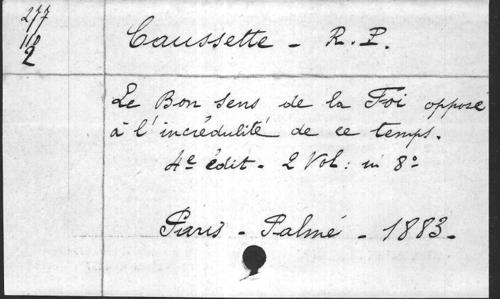 277
Caussette - R. P.
2
Le Bon sens de la Foi opposé
à l'incrédulité de ce temps.
4e édit. 2 Vol: in 8°
Paris - Palmé - 1883.